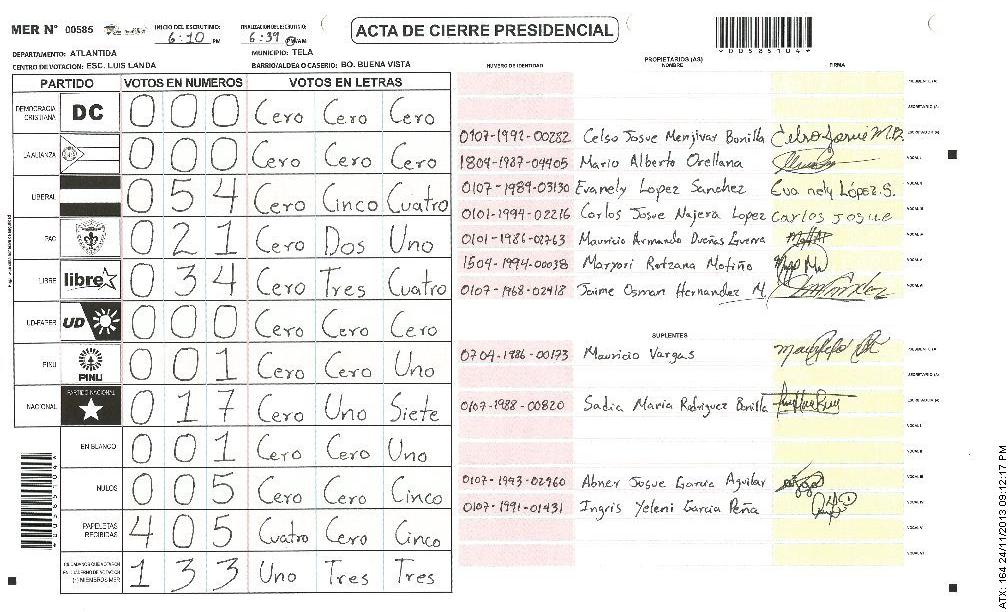 MER N° 00585
INICIO DEL ESCRUTINIO: 6:10 PM
FINALIZACION DEL ESCRUTINIO: 6:39 PM/AM
ACTA DE CIERRE PRESIDENCIAL
DEPARTAMENTO: ATLANTIDA
MUNICIPIO: TELA
CENTRO DE VOTACION: ESC. LUIS LANDA
BARRIO/ALDEA O CASERIO: BO. BUENA VISTA
PARTIDO VOTOS EN NUMEROS VOTOS EN LETRAS
DEMOCRACIA CRISTIANA DC 0 0 0 Cero Cero Cero
LA ALIANZA 0 0 0 Cero Cero Cero
LIBERAL 0 5 4 Cero Cinco Cuatro
PAC 0 2 1 Cero Dos Uno
LIBRE libre 0 3 4 Cero Tres Cuatro
UD-FAPER UD 0 0 0 Cero Cero Cero
PINU PINU 0 0 1 Cero Cero Uno
NACIONAL PARTIDO NACIONAL 0 1 7 Cero Uno Siete
EN BLANCO 0 0 1 Cero Cero Uno
NULOS 0 0 5 Cero Cero Cinco
PAPELETAS RECIBIDAS 4 0 5 Cuatro Cero Cinco
1 3 3 Uno Tres Tres
PROPIETARIOS (AS)
NUMERO DE IDENTIDAD NOMBRE FIRMA
0107-1992-00282 Celso Josue Menjivar Bonilla
1804-1987-04405 Mario Alberto Orellana
0107-1989-03130 Evanely Lopez Sanchez Eva nely López.S.
0101-1994-02216 Carlos Josue Najera Lopez Carlos Josque
0101-1986-02763 Mauricio Armando Dueñas Guerra
1504-1994-00038 Maryori Rotzana Motiño
0107-1968-02418 Jaime Osman Hernandez M.
SUPLENTES
0704-1986-00173 Mauricio Vargas
0107-1988-00820 Sadia Maria Rodriguez Bonilla
0107-1993-02960 Abner Josue Garcia Aguilar
0107-1991-01431 Ingris Yeleni Garcia Peña
ATX: 164 24/11/2013 09:12:17 PM